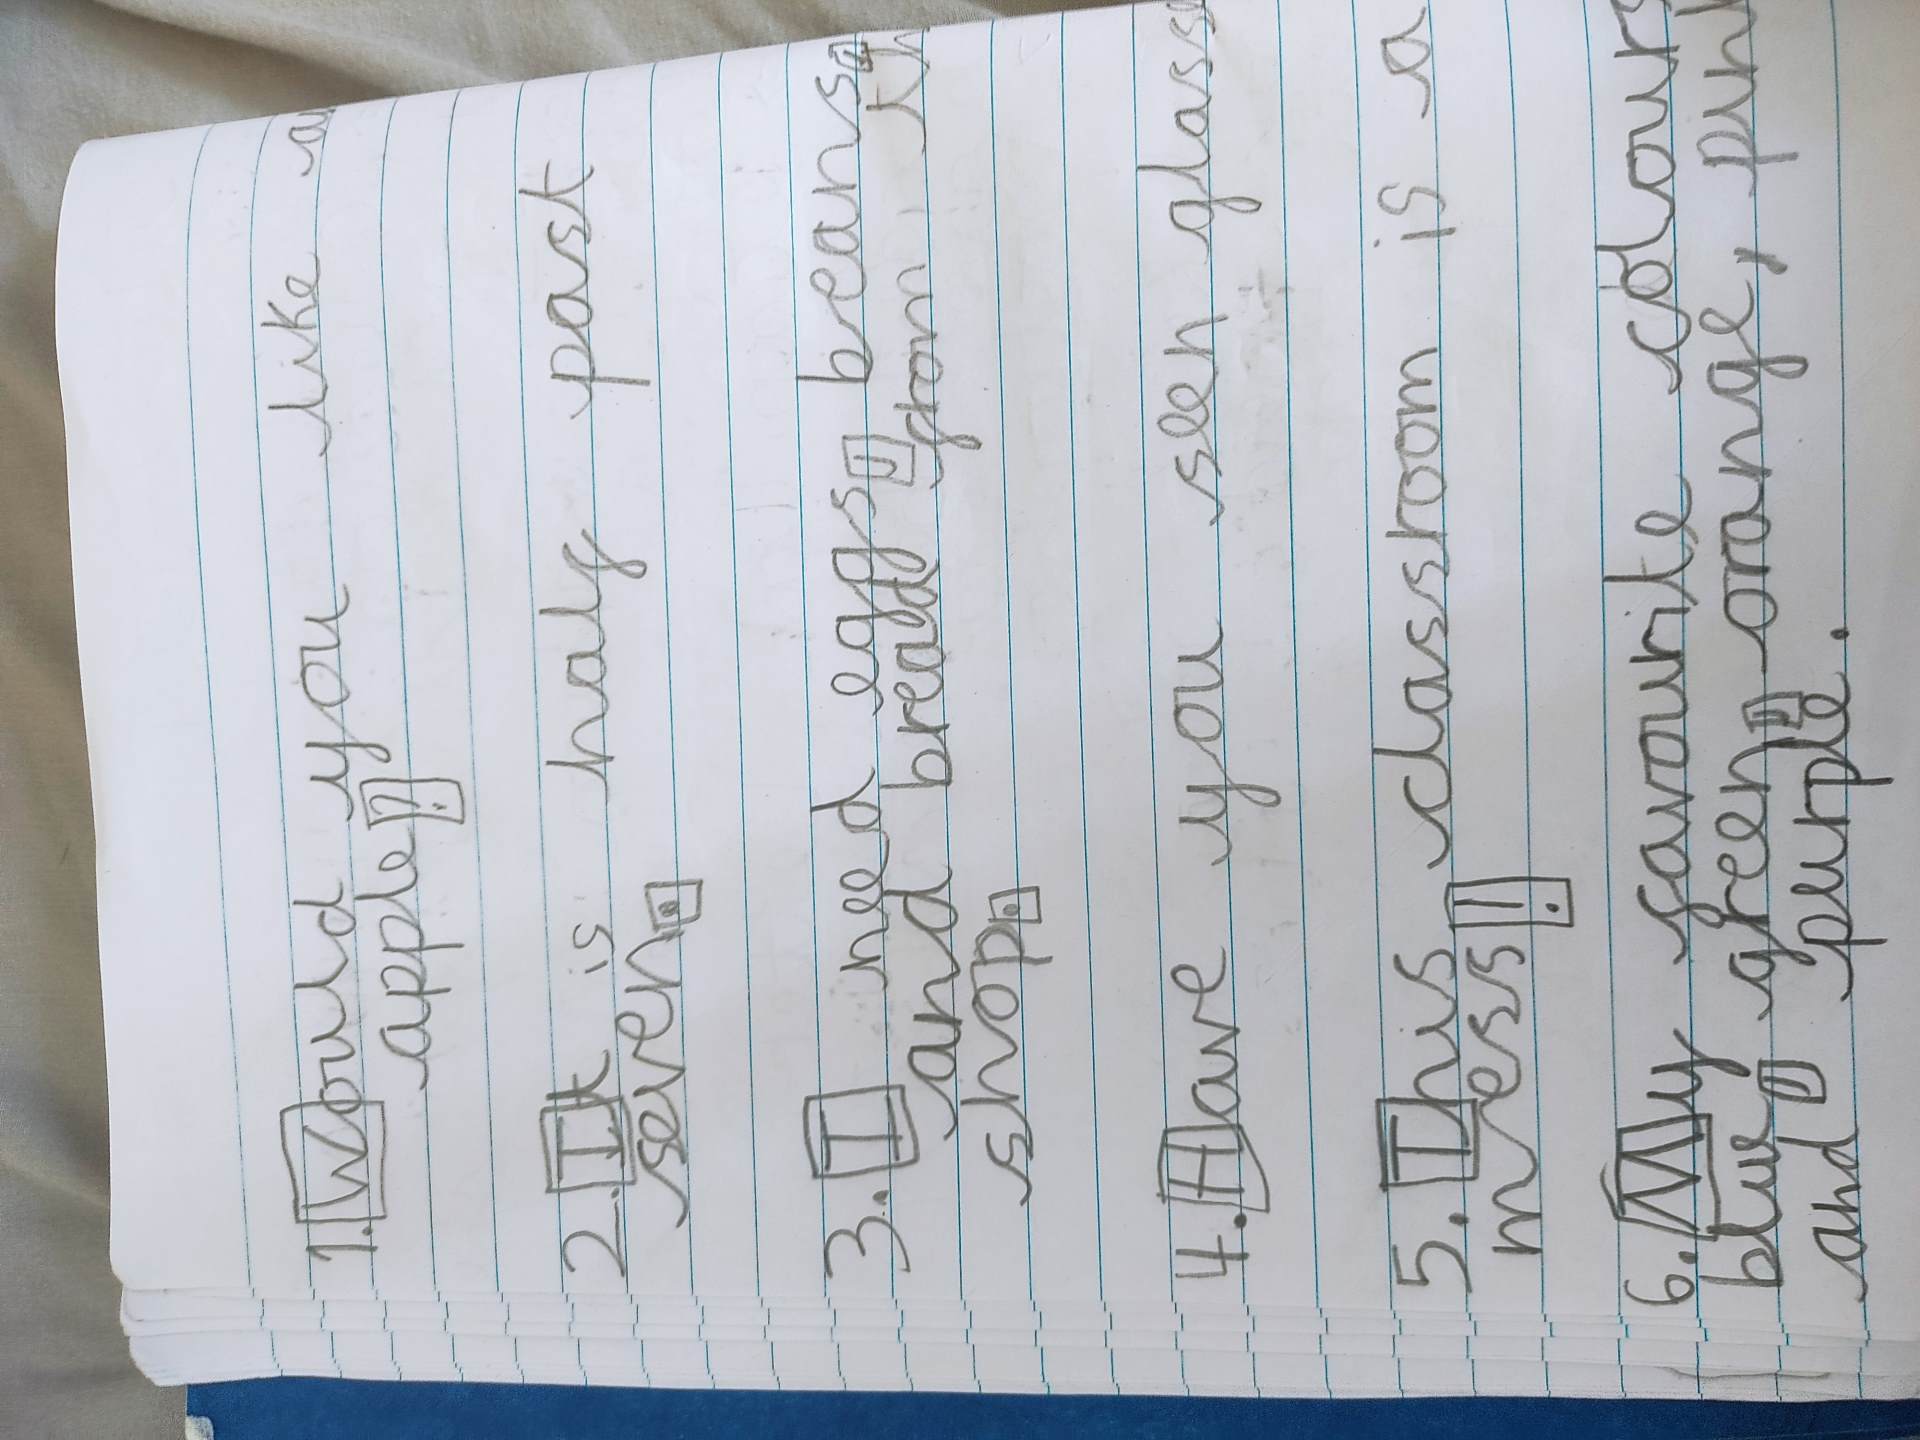 1. Would you like a
apple?
2. It is half past
seven.
3. I need eggs, beans,
and bread from th
shop.
4. Have you seen glass
5. This classroom is a
mess!
6. My favourite colours
blue, green, orange, pin
and purple.